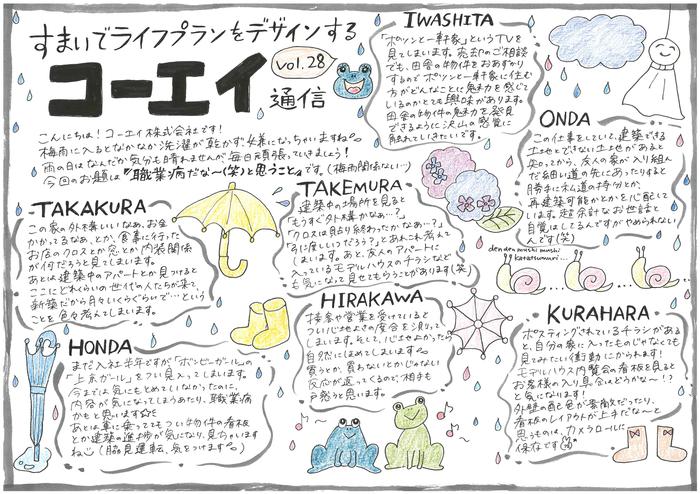 すまいでライフプランをデザインする
コーエイ
vol.28
通信
こんにちは！コーエイ株式会社です！
梅雨に入るとなかなか洗濯が乾かず嫌になっちゃいますね。
雨の日はなんだか気分も晴れませんが、毎日頑張っていきましょう！
今回のお題は『職業病だな～(笑)と思うこと』です。(梅雨関係ない…)
IWASHITA
「ポツンと一軒家」というTVを
見てしまいます。売却のご相談
でも、田舎の物件をおあずかり
するので ポツンと一軒家に住む
方がどんなことに魅力を感じて
いるのかとても興味があります。
田舎の物件の魅力を発見
できるように沢山の感覚に
触れていきたいです。
ONDA
この仕事をしていて、建築できる
土地とできない土地があると
知ってから、友人の家が入り組ん
だ細い道の先にあったりすると
勝手に私道の持分とか、
再建築可能かとかを心配して
います。超余計なお世話と
自覚はしてるんですがやめられない
んです(笑)
TAKAKURA
この家の外構いいなあ、お金
かかってるなあ、とか、食事に行った
お店のクロスとか窓とか内装関係
が何だろうと見てしまいます。
あとは建築中のアパートとか見つけると
ここにどれくらいの世代の人たちが来て、
新築だから月々いくらぐらいで…という
ことを色々考えてしまいます。
TAKEMURA
建築中の場所を見ると
「もうすぐ外構かなぁ…？」
「クロスは貼り終わったかなぁ…？」
とあれこれ考えて
しまいます。あと、友人のアパートに
入っているモデルハウスのチラシなど
も気になって見せてもらうことがあります(笑)
den den mushi mushi
katatsumuri...
HONDA
まだ入社半年ですが「ボンビーガール」の
「上京ガール」をつい見入ってしまいます。
今までは気にもとめていなかったのに、
内容が気になってしまうあたり、職業病
かもと思います☆彡
あとは車に乗っててもつい物件の看板
とか建築の進捗が気になり、見ちゃいます
ね(脇見運転、気をつけます。)
HIRAKAWA
接客や営業を受けていると
つい心地よさの度合を測って
しまいます。そして、心地よかったら
自然にほめてしまいます。
買うとか、買わないとかじゃない
反応が返ってくるので、相手も
戸惑うと思います。
KURAHARA
ポスティングされているチラシがある
と、自分の家に入ったものじゃなくても
見てみたい衝動にかられます！
モデルハウス内覧会の看板を見ると
お客様の入り具合はどうかな～！？
と気になります！
外壁の配色が素敵だったり、
看板のレイアウトが上手だな～と
思うものは、カメラロールに
保存です